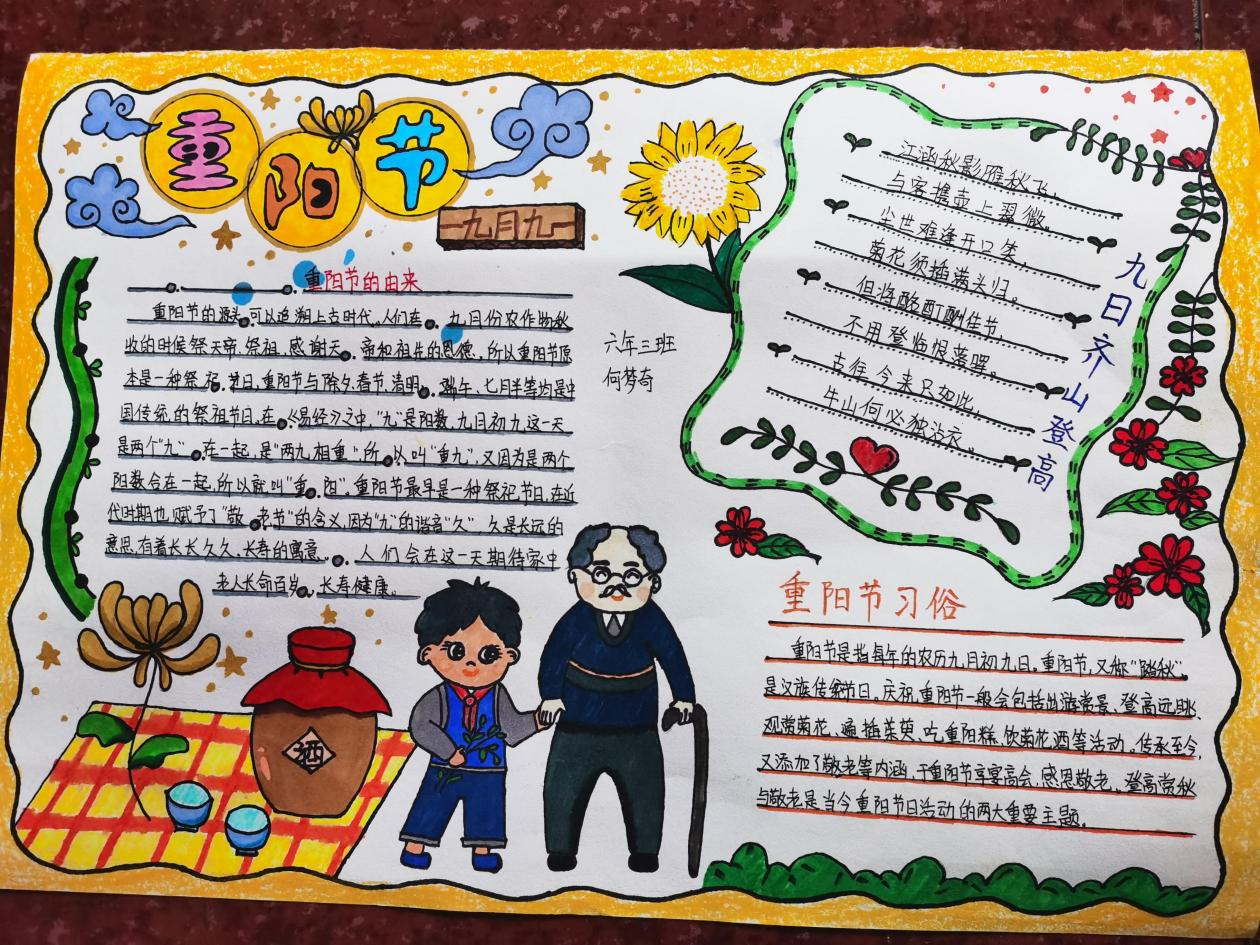 重阳节
九月九
重阳节的由来
重阳节的源头,可以追溯上古时代,人们在。九月份农作物秋
收的时候祭天帝,祭祖,感谢天。帝和祖先的恩德,所以重阳节原
本是一种祭祀节日,重阳节与除夕、春节、清明。端午、七月半等均是中
国传统的祭祖节日,在《易经》之中,"九"是阳数,九月初九这一天
是两个"九"。在一起,是"两九相重",所。以叫"重九",又因为是两个
阳数合在一起,所以就叫"重。阳"。重阳节最早是一种祭祀节日,在近
代时期也赋予了"敬。老节"的含义,因为"九"的谐音"久"。久是长远的
意思,有着长长久久,长寿的寓意。。人们会在这一天期待家中
老人长命百岁。,长寿健康。
酒
六年三班
何梦奇
九日齐山登高
江涵秋影雁秋飞,
与客携壶上翠微。
尘世难逢开口笑,
菊花须插满头归。
但将酩酊酬佳节,
不用登临恨落晖。
古往今来只如此,
牛山何必独沾衣。
重阳节习俗
重阳节是指每年的农历九月初九日,重阳节,又称"踏秋"。
是汉族传统节日。庆祝重阳节一般会包括出游赏景、登高远眺、
观赏菊花、遍插茱萸、吃重阳糕、饮菊花酒等活动。传承至今,
又添加了敬老等内涵,于重阳节享宴高会,感恩敬老。登高赏秋
与敬老是当今重阳节日活动的两大重要主题。